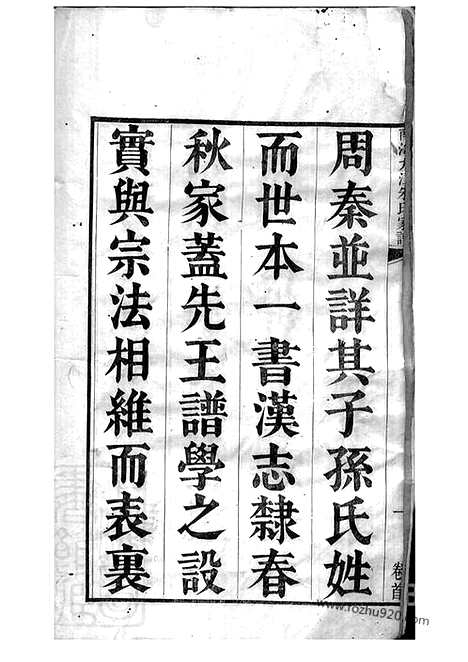 周秦並詳其子孫氏姓
而世本一書漢志隸春
秋家蓋先王譜學之設
實與宗法相維而表裏
一
卷首
www.fozhu920.com